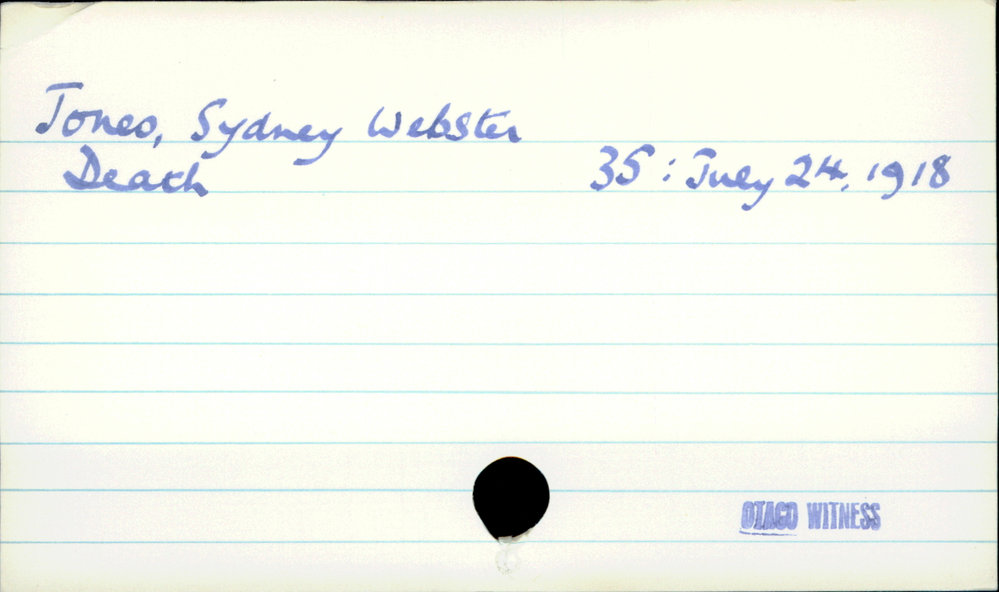 Jones, Sydney Webster
Death 35 : July 24, 1918
OTAGO WITNESS